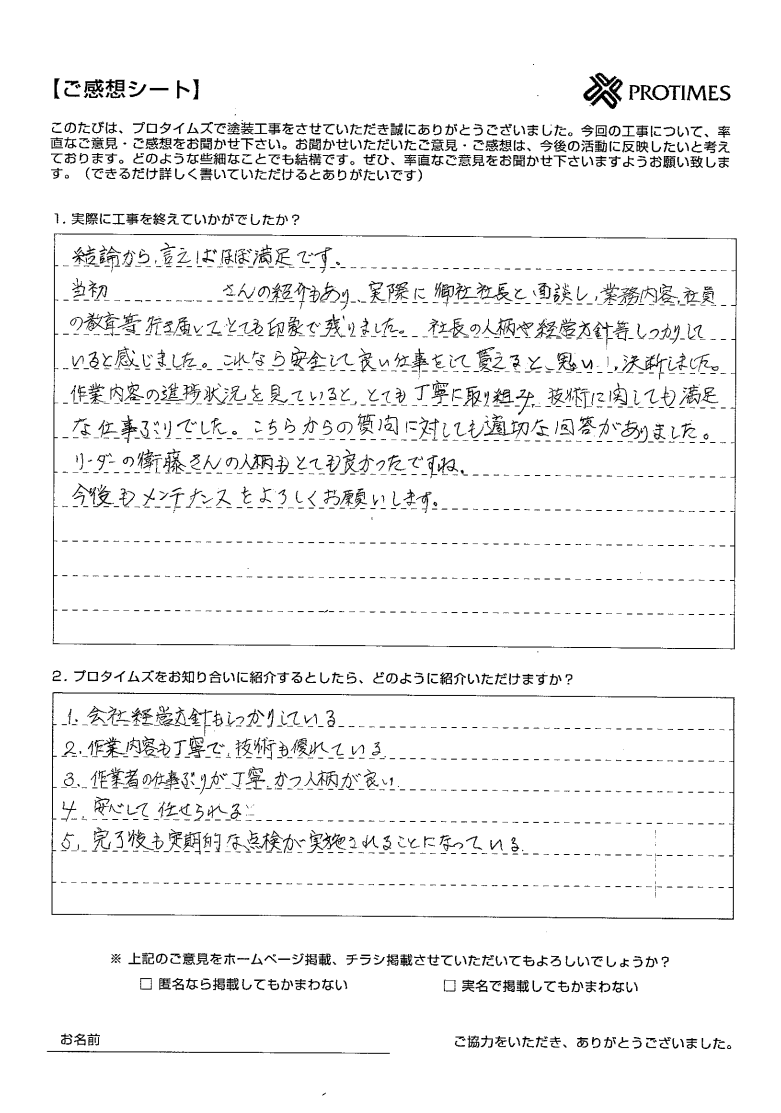 【ご感想シート】
PROTIMES
このたびは、プロタイムズで塗装工事をさせていただき誠にありがとうございました。今回の工事について、率
直なご意見・ご感想をお聞かせ下さい。お聞かせいただいたご意見・ご感想は、今後の活動に反映したいと考え
ております。どのような些細なことでも結構です。ぜひ、率直なご意見をお聞かせ下さいますようお願い致しま
す。（できるだけ詳しく書いていただけるとありがたいです）
1. 実際に工事を終えていかがでしたか？
結論から、言えばほぼ満足です。
当初 さんの紹介もあり、実際に御社社長と面談し、業務内容、社員
の教育等行き届いてとても印象で残りました。社長の人柄や経営方針等しっかりして
いると感じました。これなら安全して良い仕事をして貰えると、思い、決断しました。
作業内容の進捗状況を見ていると、とても丁寧に取り組み、技術に関しても満足
な仕事ぶりでした。こちらからの質問に対しても適切な回答がありました。
リーダーの衛藤さんの人柄もとても良かったですね。
今後もメンテナンスをよろしくお願いします。
2. プロタイムズをお知り合いに紹介するとしたら、どのように紹介いただけますか？
1. 会社経営方針もしっかりしている
2. 作業内容も丁寧で、技術も優れている
3. 作業者の仕事ぶりが丁寧、かつ人柄が良い
4. 安心して任せられる
5. 完了後も定期的な点検が実施されることになっている。
※ 上記のご意見をホームページ掲載、チラシ掲載させていただいてもよろしいでしょうか？
□ 匿名なら掲載してもかまわない □ 実名で掲載してもかまわない
お名前 ご協力をいただき、ありがとうございました。